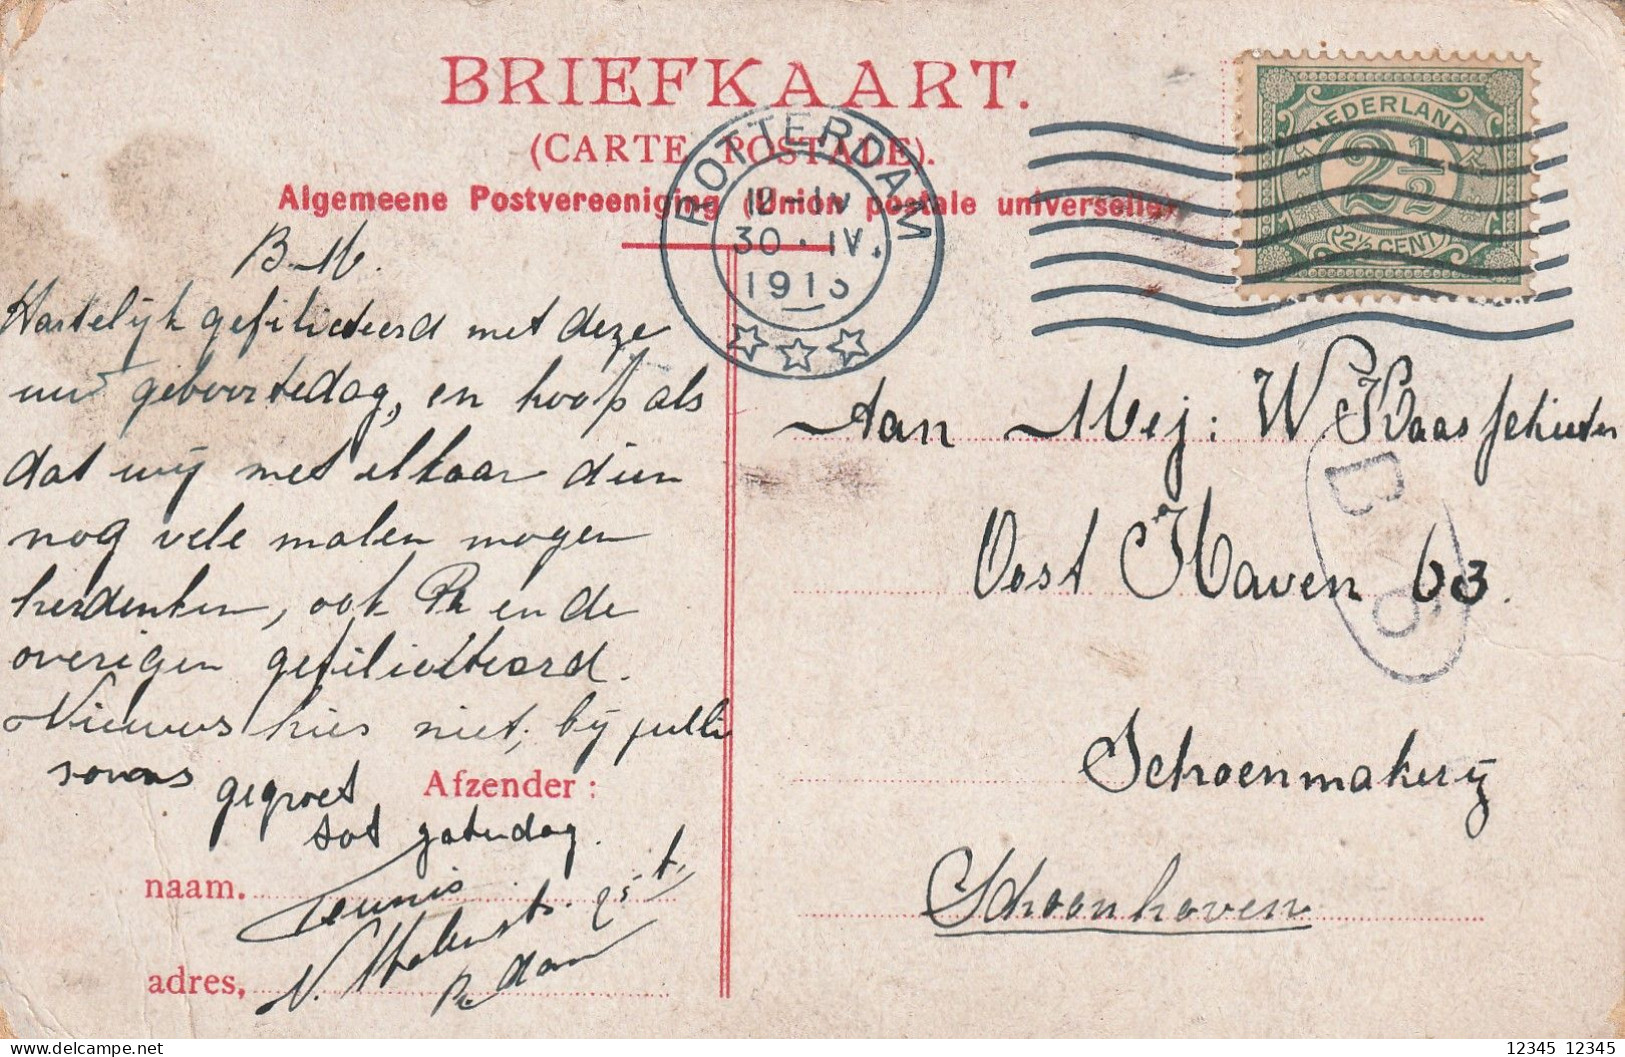 BRIEFKAART.
(CARTE POSTALE).
Algemeene Postvereeniging (Union postale universelle)
ROTTERDAM
12-1N
30.IV.
191
NEDERLAND
2 1/2
(2½ CENT)
B.M.
Hartelijk gefiliciteerd met deze
uw geboortedag, en hoop als
dat wij met elkaar dien
nog vele malen mogen
herdenken, ook Pa en de
overigen gefiliciteerd.
Nieuws hier niet, bij jullie
gegroet
tot zaterdag.
Afzender:
naam. Teunis
adres, N.
R dam
Aan Mej: W Klaas
Oost Haven 63.
Schoenmakerij
Schoonhoven
B
12345 12345